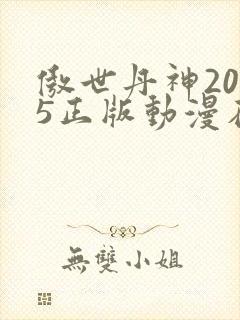 傲世丹神20
5正版動漫在
無雙小姐